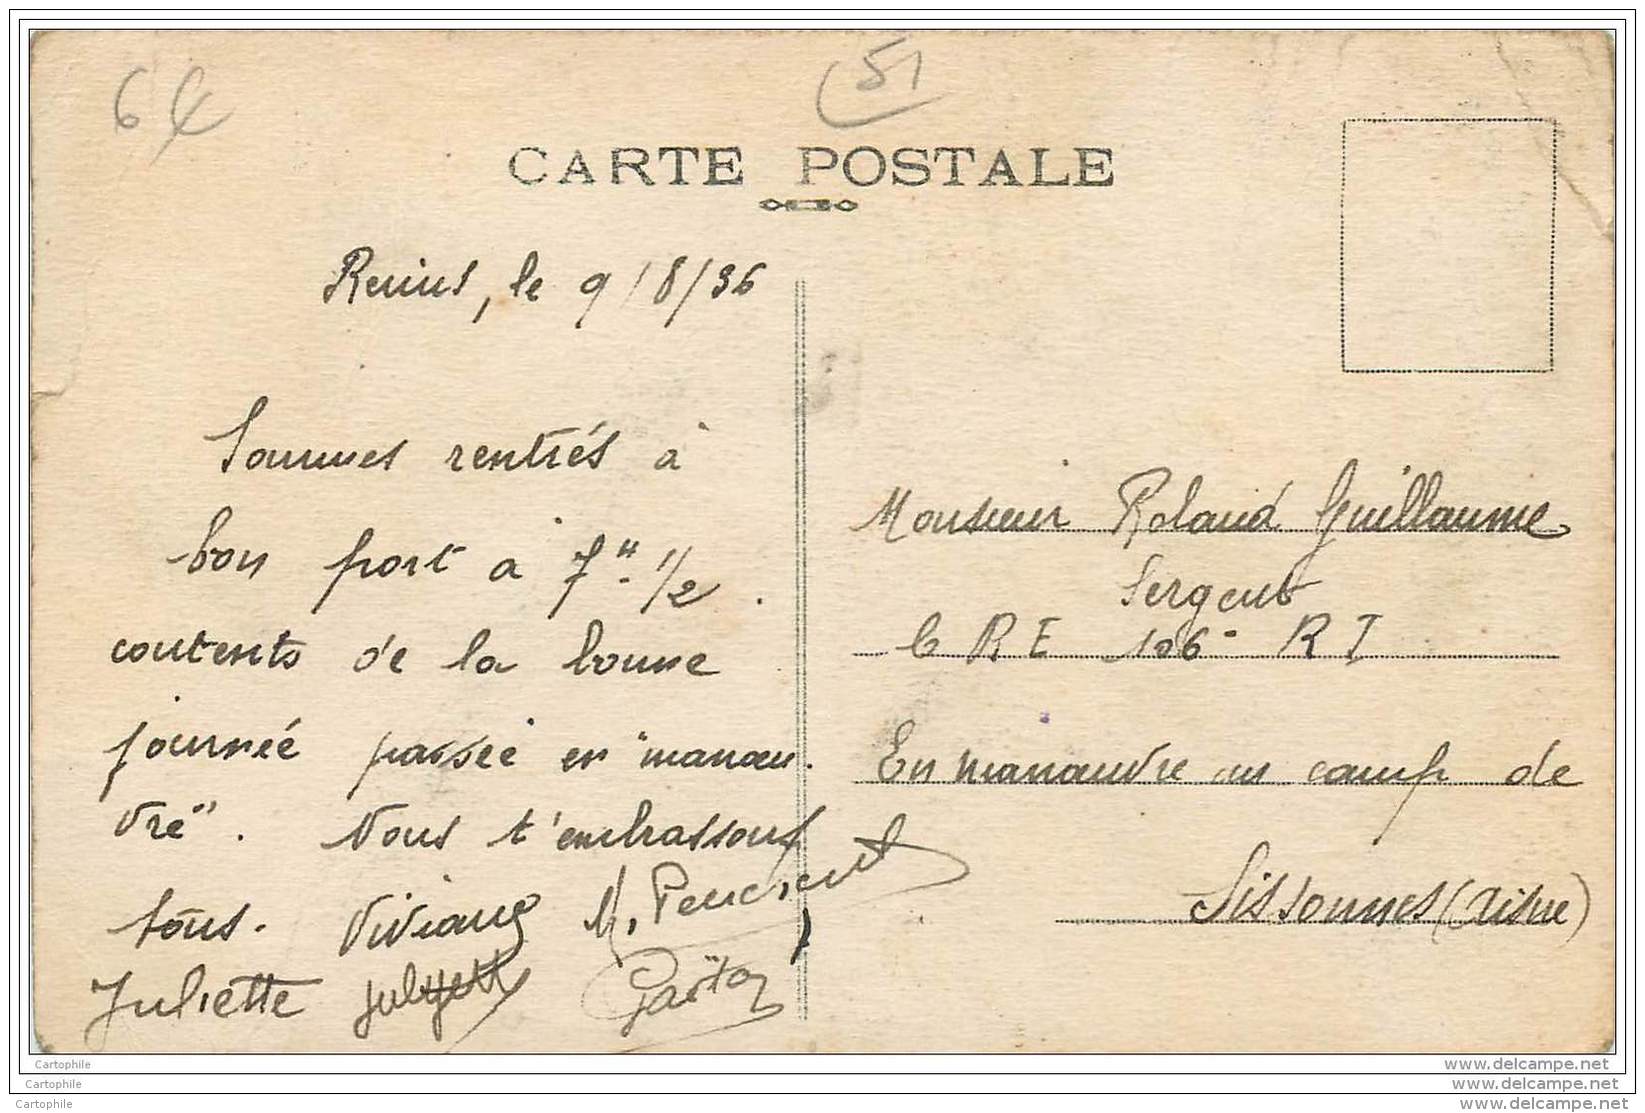 6€
51
CARTE POSTALE
Reims, le 9/8/36
Sommes rentrés à
bon port à 7H 1/2.
contents de la bonne
journée passée en "manoeu-
vre". Nous t'embrassons
tous. Viviane
Juliette Gaston
Monsieur Roland Guillaume
Sergent
RE 106 RI
En manoeuvre au camp de
Sissonnes (Aisne)
Cartophile
Cartophile
Cartophile
www.delcampe.net
www.delcampe.net
www.delcampe.net